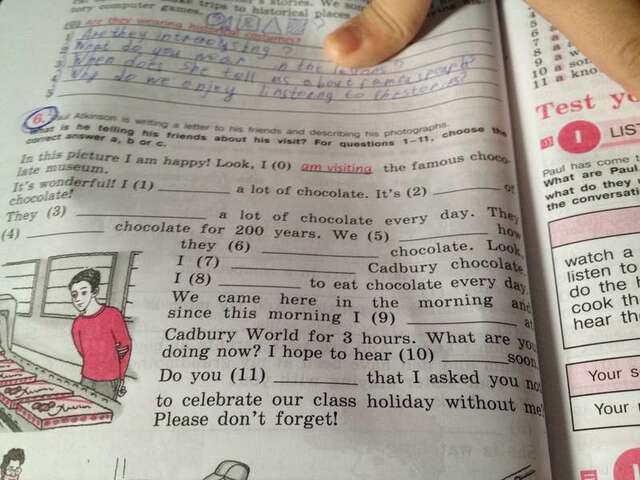 trips to historical places
sory computer games.
(0) Are they wearing historical costumes?
Are they interesting?
What do you wear in the lesson?
When does she tell us about famous people
Why do we enjoy listening to the stories?
6. Paul Atkinson is writing a letter to his friends and describing his photographs.
What is he telling his friends about his visit? For questions 1–11, choose the
correct answer a, b or c.
In this picture I am happy! Look, I (0) am visiting the famous choco-
late museum.
It's wonderful! I (1) ________ a lot of chocolate. It's (2) ________ of
chocolate!
They (3) ________ a lot of chocolate every day. They
(4) ________ chocolate for 200 years. We (5) ________ how
they (6) ________ chocolate. Look,
I (7) ________ Cadbury chocolate.
I (8) ________ to eat chocolate every day.
We came here in the morning and
since this morning I (9) ________ at
Cadbury World for 3 hours. What are you
doing now? I hope to hear (10) ________ soon.
Do you (11) ________ that I asked you not
to celebrate our class holiday without me!
Please don't forget!
7 a
8 a w
9 a
10 a son
11 a kno
Test yo
I LIS
Paul has come
What are Paul
what do they
the conversati
watch a
listen to
do the h
cook th
hear the
Your s
Your
I